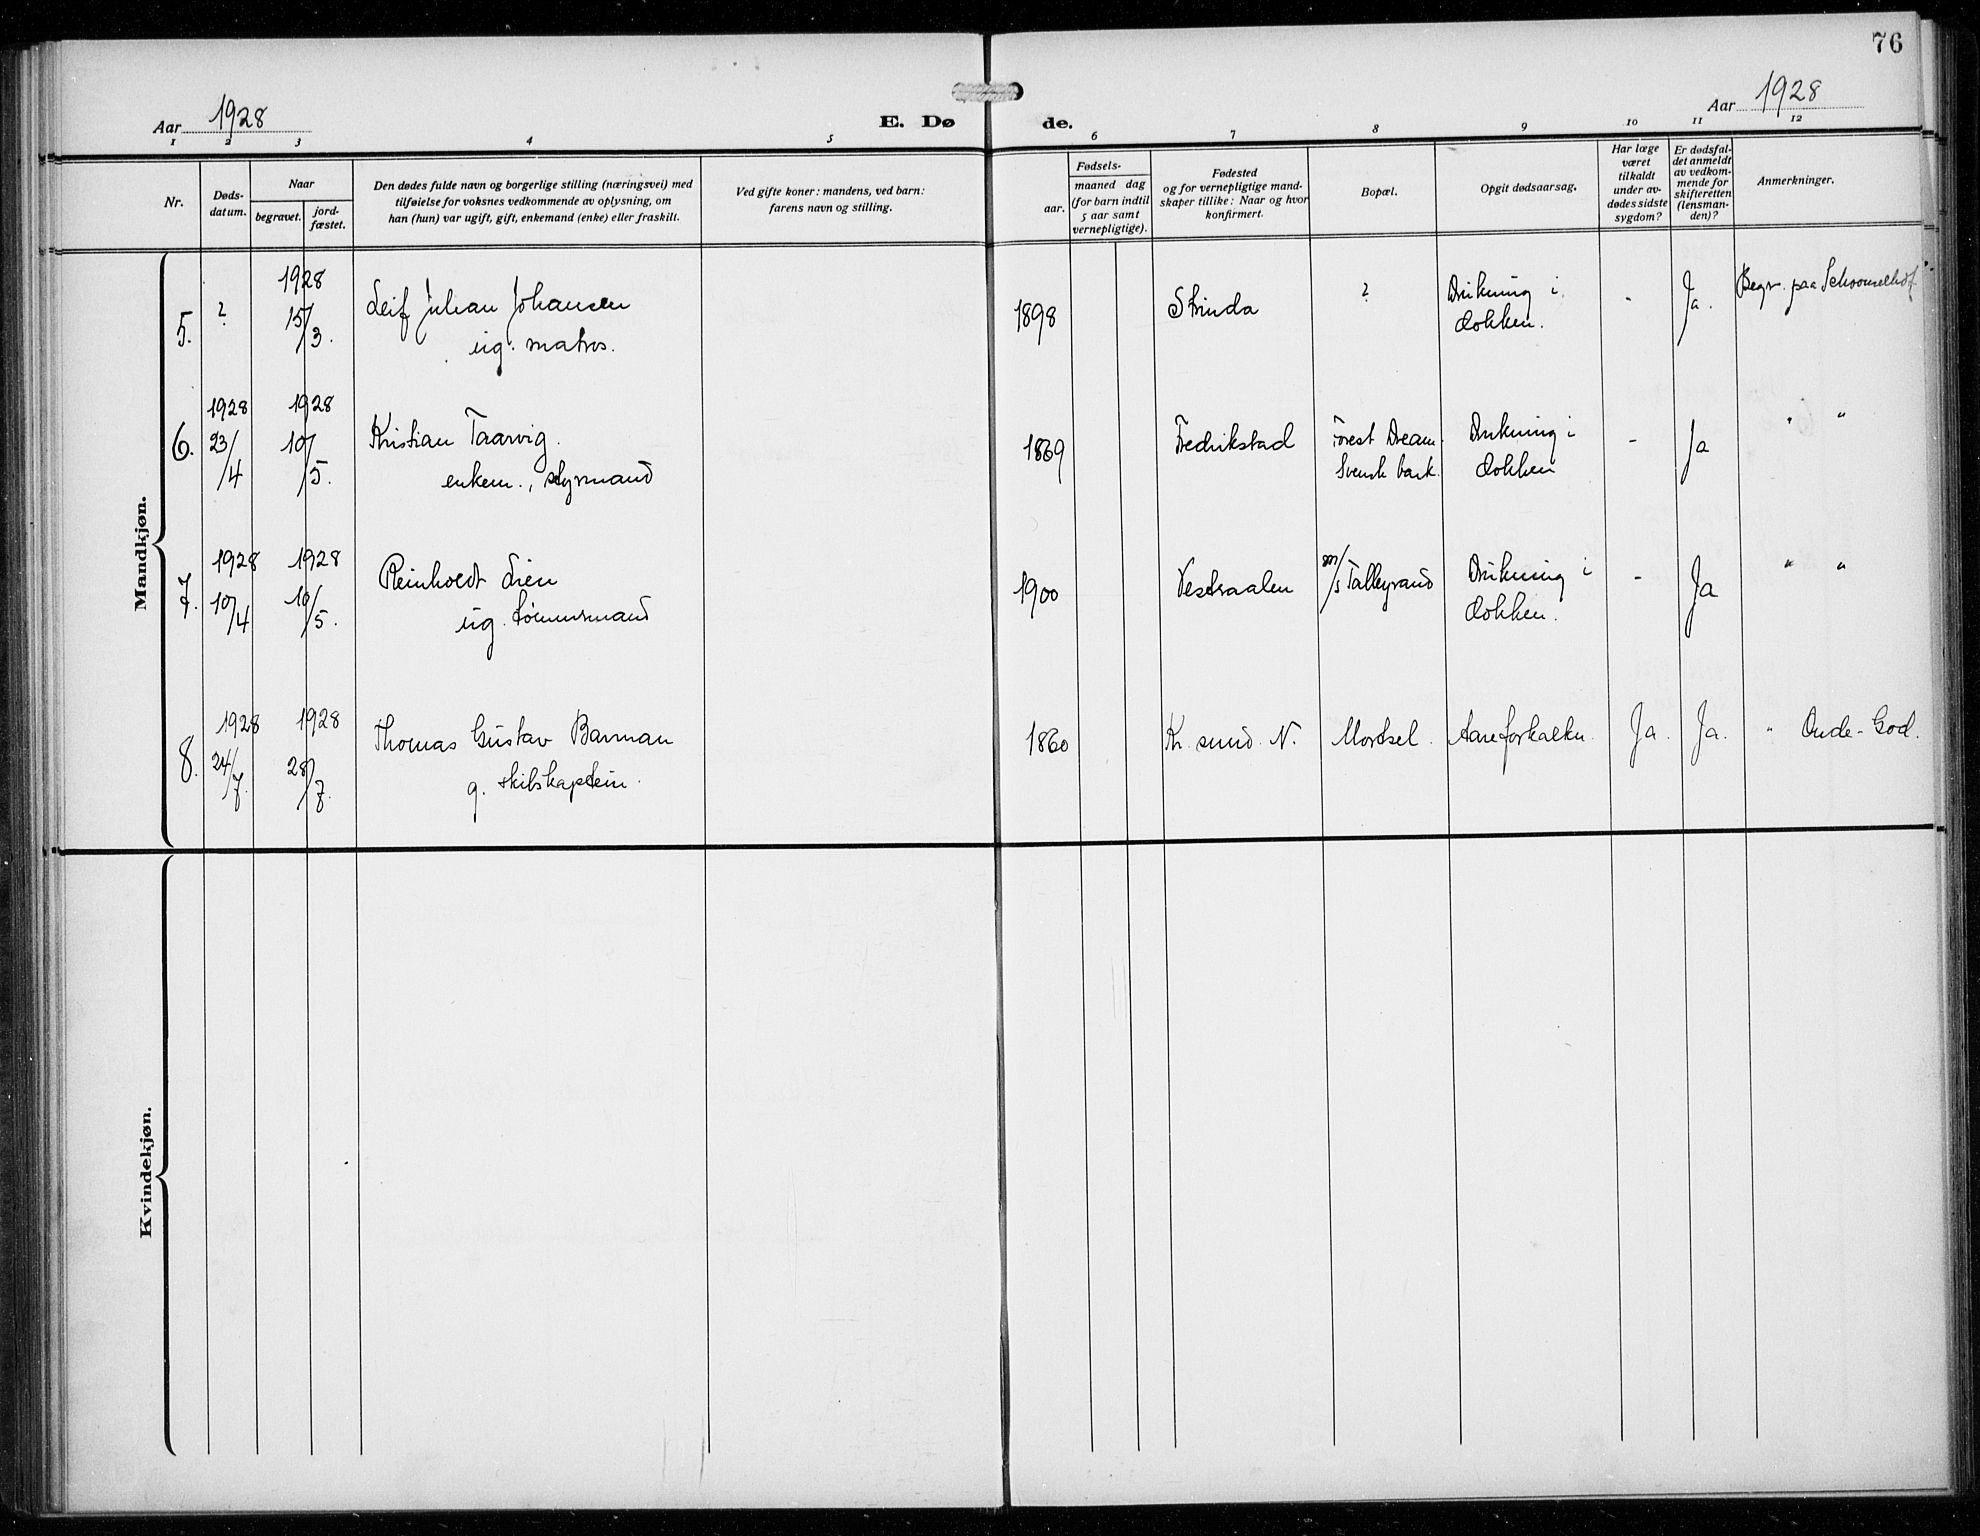 76
Aar 1928
E. Dø
de.
Aar 1928
1 2 3 4 5 6 7 8 9 10 11 12
Nr.
Døds-
datum.
Naar
begravet.
jord-
fæstet.
Den dødes fulde navn og borgerlige stilling (næringsvei) med
tilføielse for voksnes vedkommende av oplysning, om
han (hun) var ugift, gift, enkemand (enke) eller fraskilt.
Ved gifte koner: mandens, ved barn:
farens navn og stilling.
Fødsels-
aar.
maaned dag
(for barn indtil
5 aar samt
vernepligtige).
Fødested
og for vernepligtige mand-
skaper tillike: Naar og hvor
konfirmert.
Bopæl.
Opgit dødsaarsag.
Har læge
været
tilkaldt
under av-
dødes sidste
sygdom?
Er dødsfal-
det anmeldt
av vedkom-
mende for
skifteretten
(lensman-
den)?
Anmerkninger.
Mandkjøn.
5. ? 1928 15/3. Leif Julian Johansen 1898 Strinda ? Drukning i - Ja. Begr. paa Schoonselhof.
ug. matros. dokken.
6. 1928 23/4 1928 10/5. Kristian Taarvig. 1869 Fredrikstad Forest Dream. Drukning i - Ja " "
enkem., styrmand Svensk bark. dokken
7. 1928 10/4 1928 10/5. Reinholdt Lien 1900 Vesteraalen m/s Talleyrand Drukning i - Ja " "
ug. tømmermand dokken.
8. 1928 24/7. 1928 28/7. Thomas Gustav Barman 1860 Kr. sund. N. Mortsel. Aareforkalkn. Ja. Ja. " Oude-God.
g. skibskaptein.
Kvindekjøn.